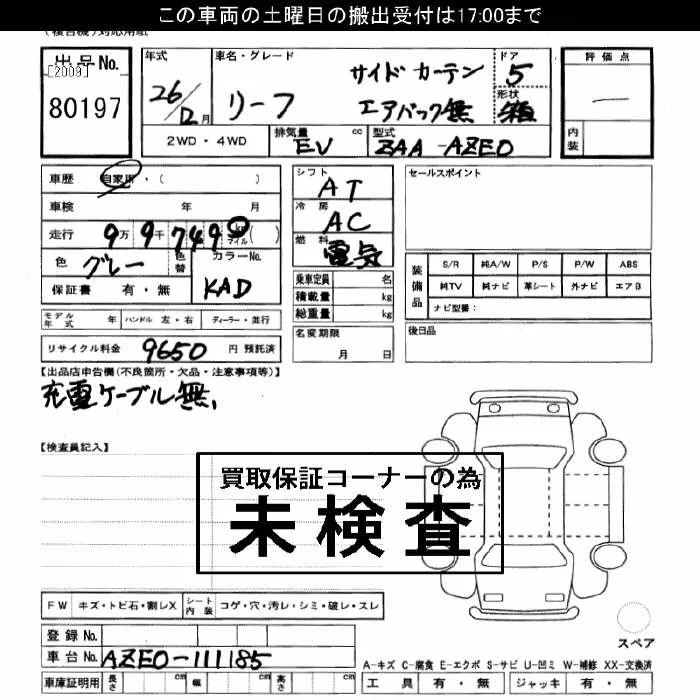 この車両の土曜日の搬出受付は17:00まで
(複合機)対応用紙
出品No. [2009] 80197
年式 26/12月
車名・グレード リーフ サイドカーテンエアバック無
ドア 5
形状 箱
評価点 —
内装
2WD・4WD
排気量 EV cc
型式 ZAA-AZE0
車歴 自家用・( )
シフト AT
セールスポイント
車検 年 月
冷房 AC
走行 9万9千749 km マイル ( )
燃料 電気
色 グレー 色替 カラーNo. KAD
保証書 有・無
乗車定員 名
積載量 kg
総重量 kg
装備品 S/R 純A/W P/S P/W ABS
純TV 純ナビ 革シート 外ナビ エアB
ナビ型番:
モデル年式 年 ハンドル 左・右 ディーラー・並行
名変期限 月 日
後日品
リサイクル料金 9650 円 預託済
【出品店申告欄(不良箇所・欠品・注意事項等)】
充電ケーブル無,
【検査員記入】
買取保証コーナーの為
未検査
FW キズ・トビ石・割レX シート内装 コゲ・穴・汚レ・シミ・破レ・スレ
登録No.
スペア
車台No. AZE0-111185
A-キズ C-腐食 E-エクボ S-サビ U-凹ミ W-補修 XX-交換済
車庫証明用 長さ cm 幅 cm 高さ cm
工具 有・無 ジャッキ 有・無